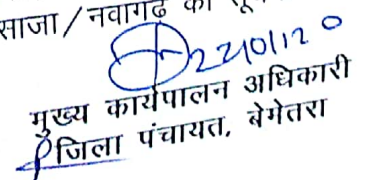 साजा/नवागढ़ की
22/01/20
मुख्य कार्यपालन अधिकारी
जिला पंचायत, बेमेतरा